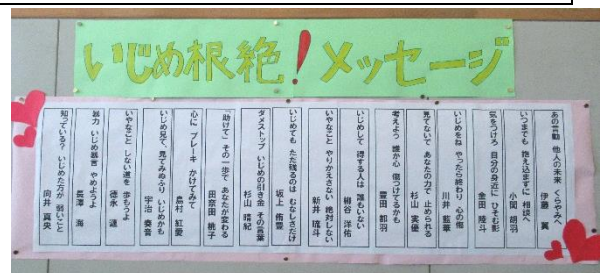 いじめ根絶！メッセージ
あの言動 他人の未来 くらやみへ
伊藤 翼
いつまでも 抱え込まずに 相談へ
小関 胡羽
気をつけろ 自分の身近に ひそむ影
金田 陸斗
いじめをね やったら終わり 心の傷
川井 藍華
見てないで あなたの力で 止められる
杉山 実優
考えよう 誰か心 傷つけてるかも
豊田 都羽
いじめして 得する人は 誰もいない
柳谷 洋佑
いやなこと やりかえさない 絶対しない
新井 琉斗
いじめても ただ残るのは むなしさだけ
坂上 侑豊
ダメストップ いじめの引き金 その言葉
杉山 晴紀
「助けて」 その一歩で あなたが変わる
田奈田 桃子
心に ブレーキ かけてみて
島村 紅愛
いじめ見て 見てみぬふり いじめかも
宇治 奏音
いやなこと しない道を 歩もうよ
徳永 蓮
暴力 いじめ暴言 やめようよ
長澤 海
知っている？ いじめた方が 弱いこと
向井 真央